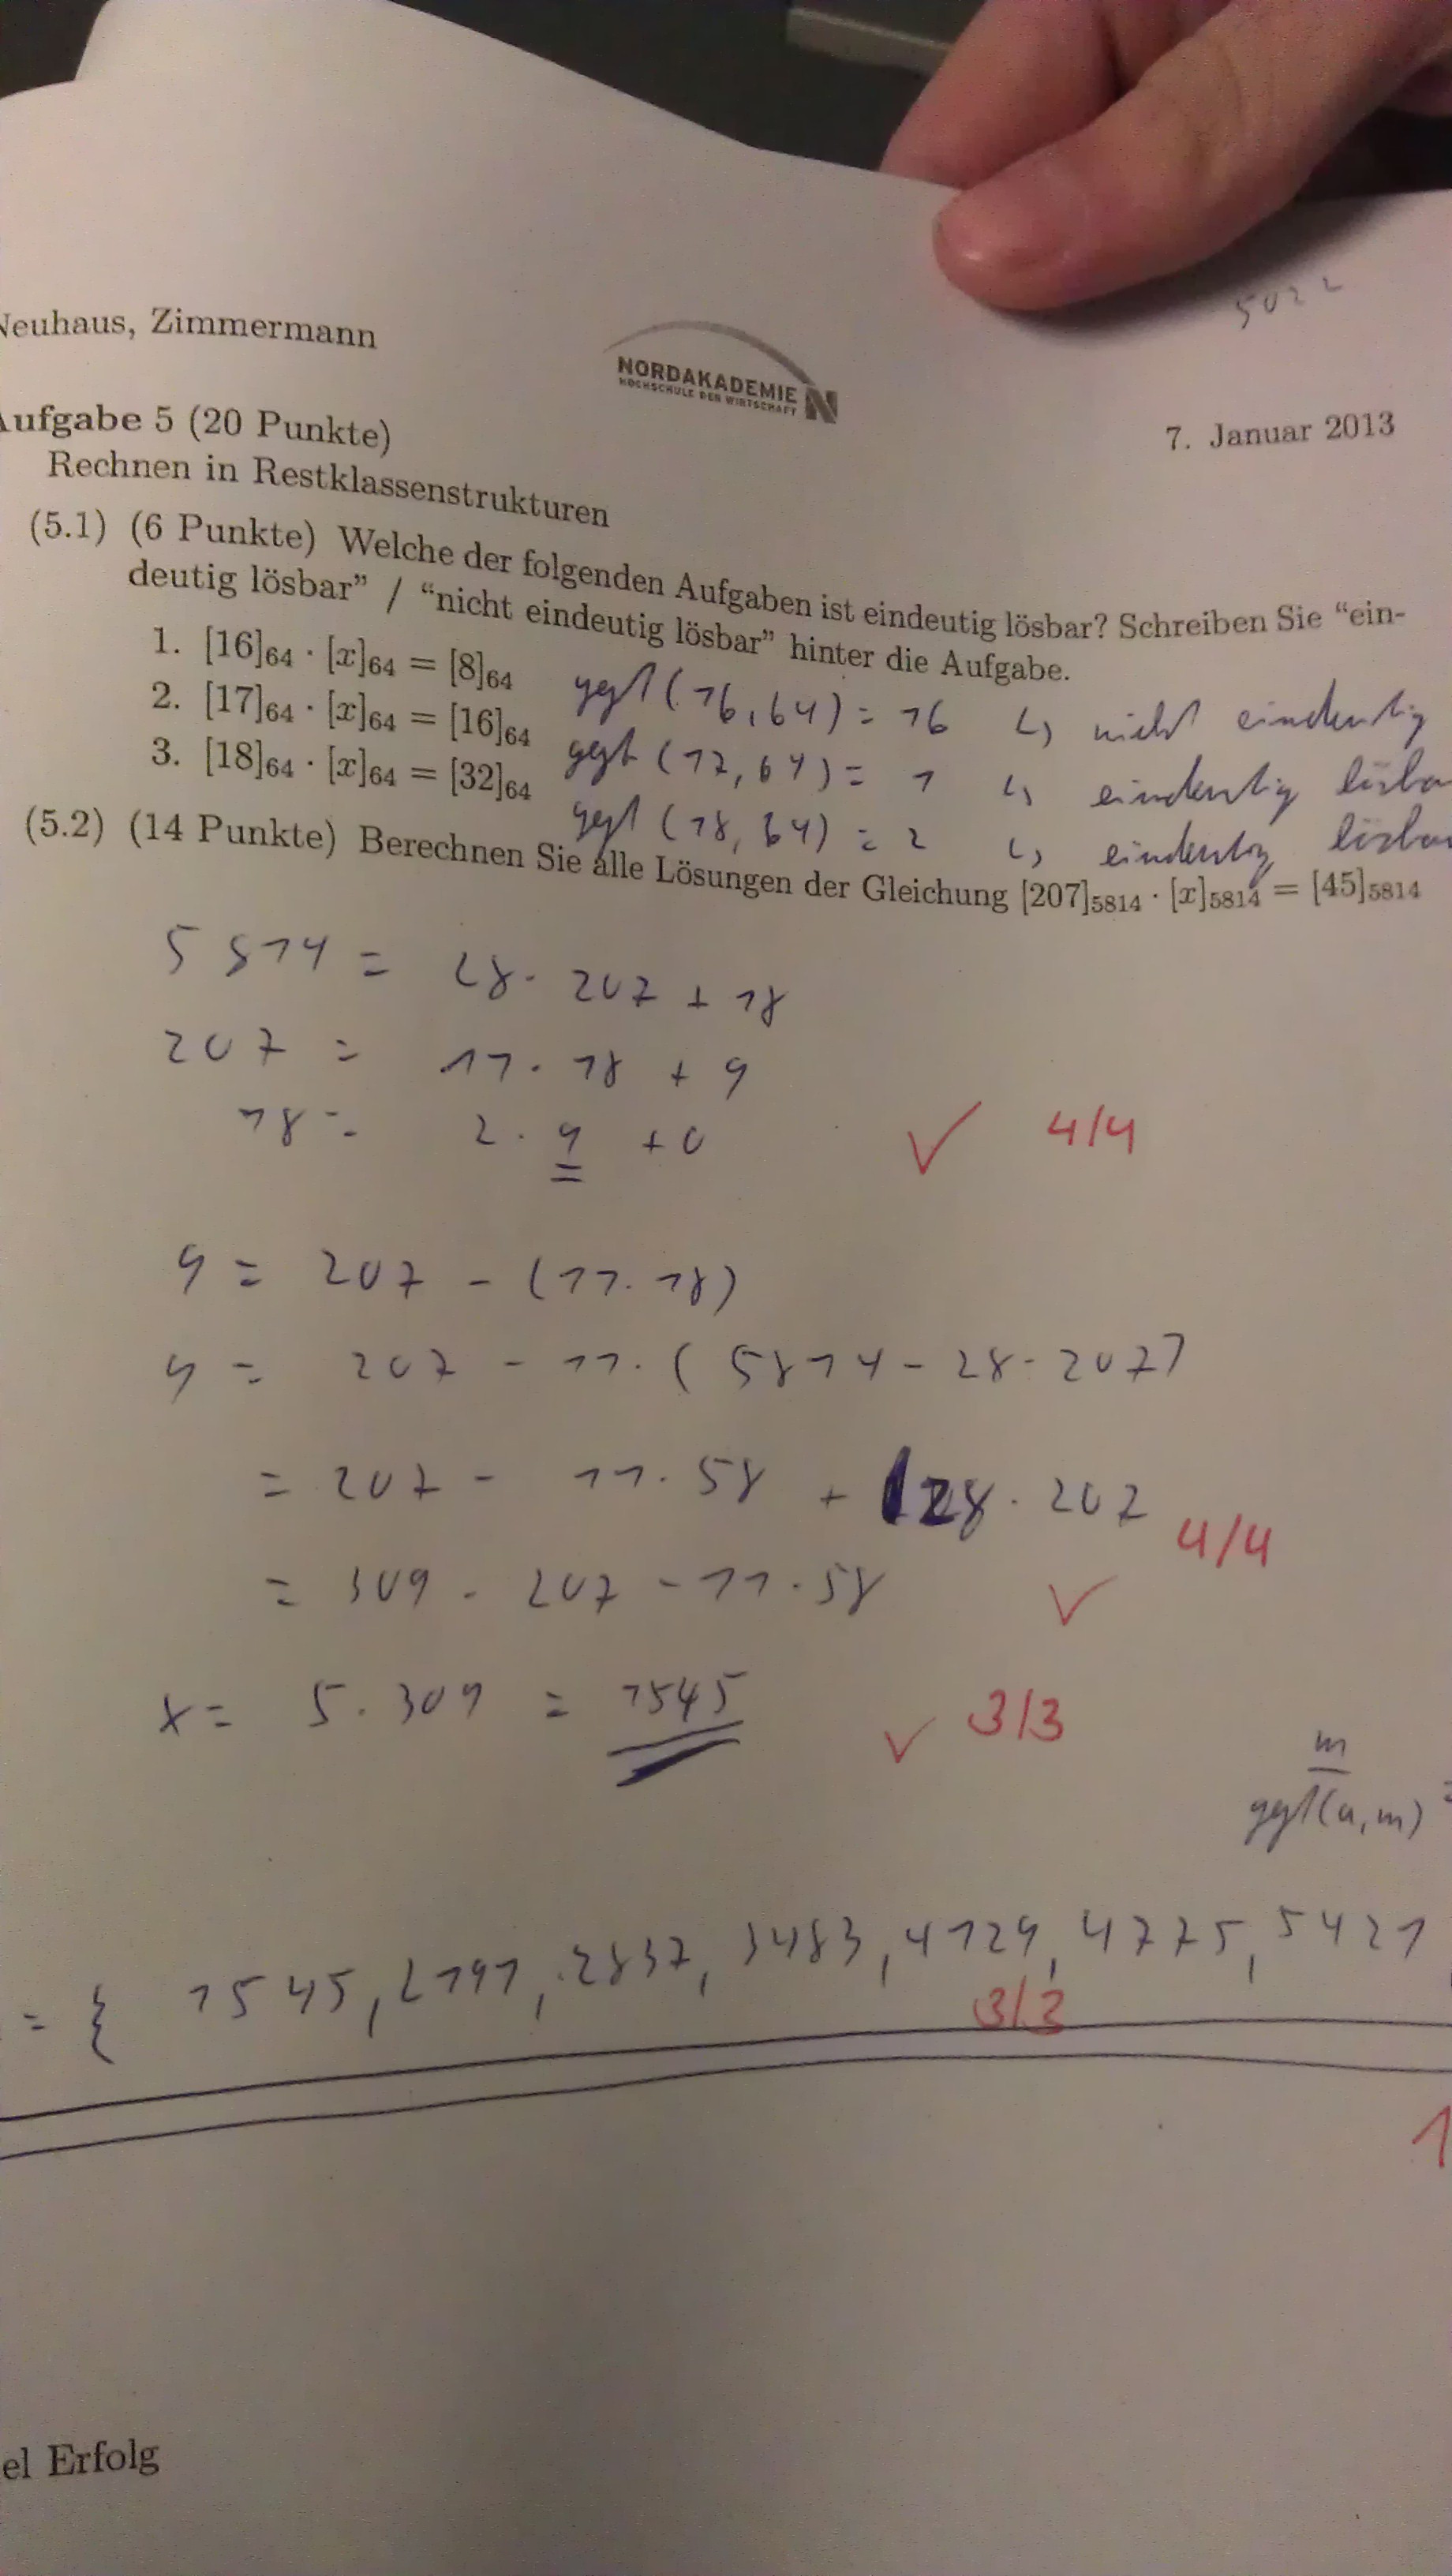 5022
Neuhaus, Zimmermann
NORDAKADEMIE N
HOCHSCHULE DER WIRTSCHAFT
7. Januar 2013
Aufgabe 5 (20 Punkte)
Rechnen in Restklassenstrukturen
(5.1) (6 Punkte) Welche der folgenden Aufgaben ist eindeutig lösbar? Schreiben Sie "ein-
deutig lösbar" / "nicht eindeutig lösbar" hinter die Aufgabe.
1. [16]64 · [x]64 = [8]64 ggT (16,64) = 16 ↳ nicht eindeutig
2. [17]64 · [x]64 = [16]64 ggT (17,64) = 1 ↳ eindeutig lösba
3. [18]64 · [x]64 = [32]64 ggT (18,64) = 2 ↳ eindeutig lösba
(5.2) (14 Punkte) Berechnen Sie alle Lösungen der Gleichung [207]5814 · [x]5814 = [45]5814
5814 = 28 · 207 + 18
207 = 11 · 18 + 9
18 = 2 · 9 + 0 ✓ 4/4
9 = 207 - (11 · 18)
9 = 207 - 11 · (5814 - 28 · 207)
= 207 - 11 · 58 + 28 · 207 4/4
= 309 · 207 - 11 · 58 ✓
x = 5 · 309 = 1545 ✓ 3/3
m
ggT(a,m) =
= { 1545, 2191, 2837, 3483, 4129, 4775, 5421
3/3
1
el Erfolg